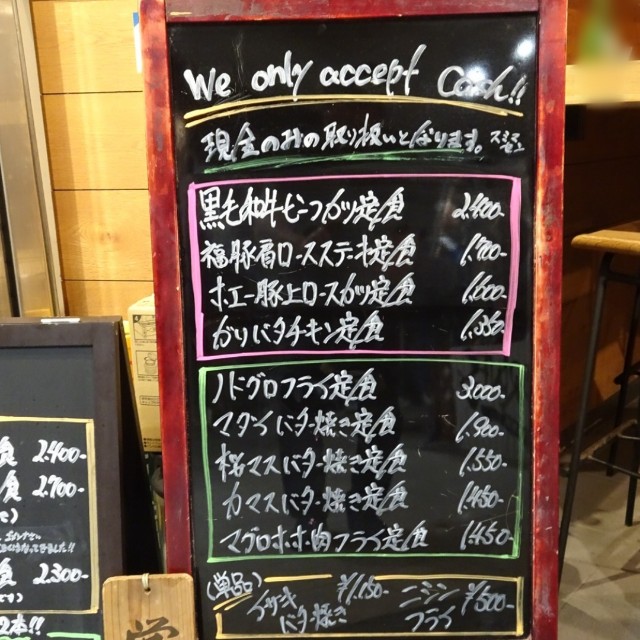 We only accept Cash!!
現金のみの取り扱いとなります。スミマセン
黒毛和牛ビーフカツ定食 2.400-
福豚肩ロースステーキ定食 1.700-
ホエー豚上ロースカツ定食 1.600-
ガリバタチキン定食 1.350-
ノドグロフライ定食 3.000-
マダイバター焼き定食 1.900-
桜マスバター焼き定食 1.550-
カマスバター焼き定食 1.450-
マグロホホ肉フライ定食 1.450-
(単品)
イサキバター焼き ¥1.150-
ニシンフライ ¥500-
食 2.400-
食 2.700-
食 2.300-
です)
2本!!